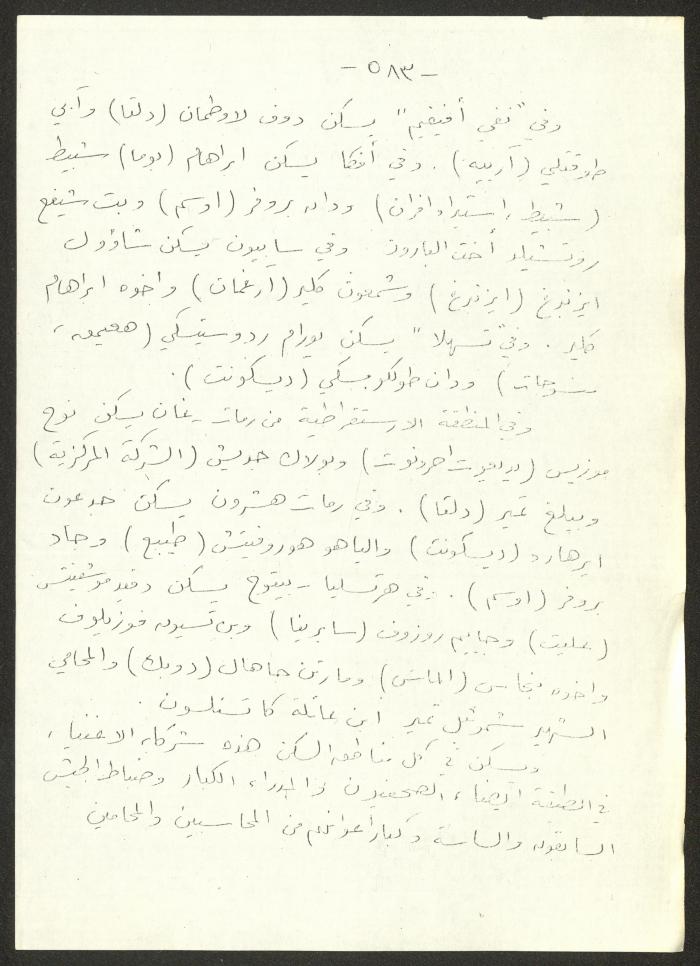 - ٥٨٣ -
وفي "نفي أفيفيم" يسكن دوف لاوطمان (دلتا) وآبي
طوقتلي (آربيه). وفي أفكا يسكن ابراهام (بوما) شبيط
(شبيط، افران) ودان بروفر (اوسم) وبت شيفع
روتشيلد أخت البارون. وفي سابيون يسكن شاؤول
ايزنبرغ (ايزنبرغ) وشمعون كلير (آرغمان) واخوه ابراهام
كلير. وفي "تسهلا" يسكن يورام ردوستيسكي
ودان طولكوبسكي (ديسكونت).
وفي المنطقة الارستقراطية من رمات غان يسكن نوح
موزيس (يديعوت احرونوت) وبولاك حديش (الشركة المركزية)
تمير (دلتا). وفي رمات هشرون يسكن جدعون
ايرهارد (ديسكونت) والياهو هوروفيتش (طيبع) وجاد
بروفر (اوسم). وفي هرتسليا - بيتوح يسكن دفيد موشفيتش
(عليت) وحاييم روزوف (سابرينا) وبن تسيون فوزيلوف
واخوه بنحاس (الماس) ومارتن جاهال (دوبك) والمحامي
الشهير شموئيل تمير ابن عائلة كاتسنلسون.
ويسكن في كل مناطق السكن هذه شركاء الاغنياء،
في الطبقة ايضا، الصحفيون والمدراء الكبار وضباط الجيش
السابقون والساسة وكبار أعوانهم من المحاسبين والمحامين